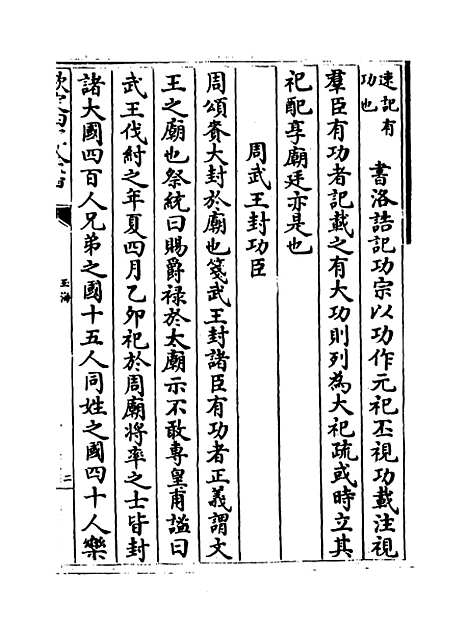 速記有
功也
書洛誥記功宗以功作元祀丕視功載注視
羣臣有功者記載之有大功則列為大祀疏或時立其
祀配享廟廷亦是也
周武王封功臣
周頌賚大封於廟也箋武王封諸臣有功者正義謂文
王之廟也祭統曰賜爵禄於太廟示不敢專皇甫謐曰
武王伐紂之年夏四月乙卯祀於周廟將率之士皆封
諸大國四百人兄弟之國十五人同姓之國四十人樂
玉海
二